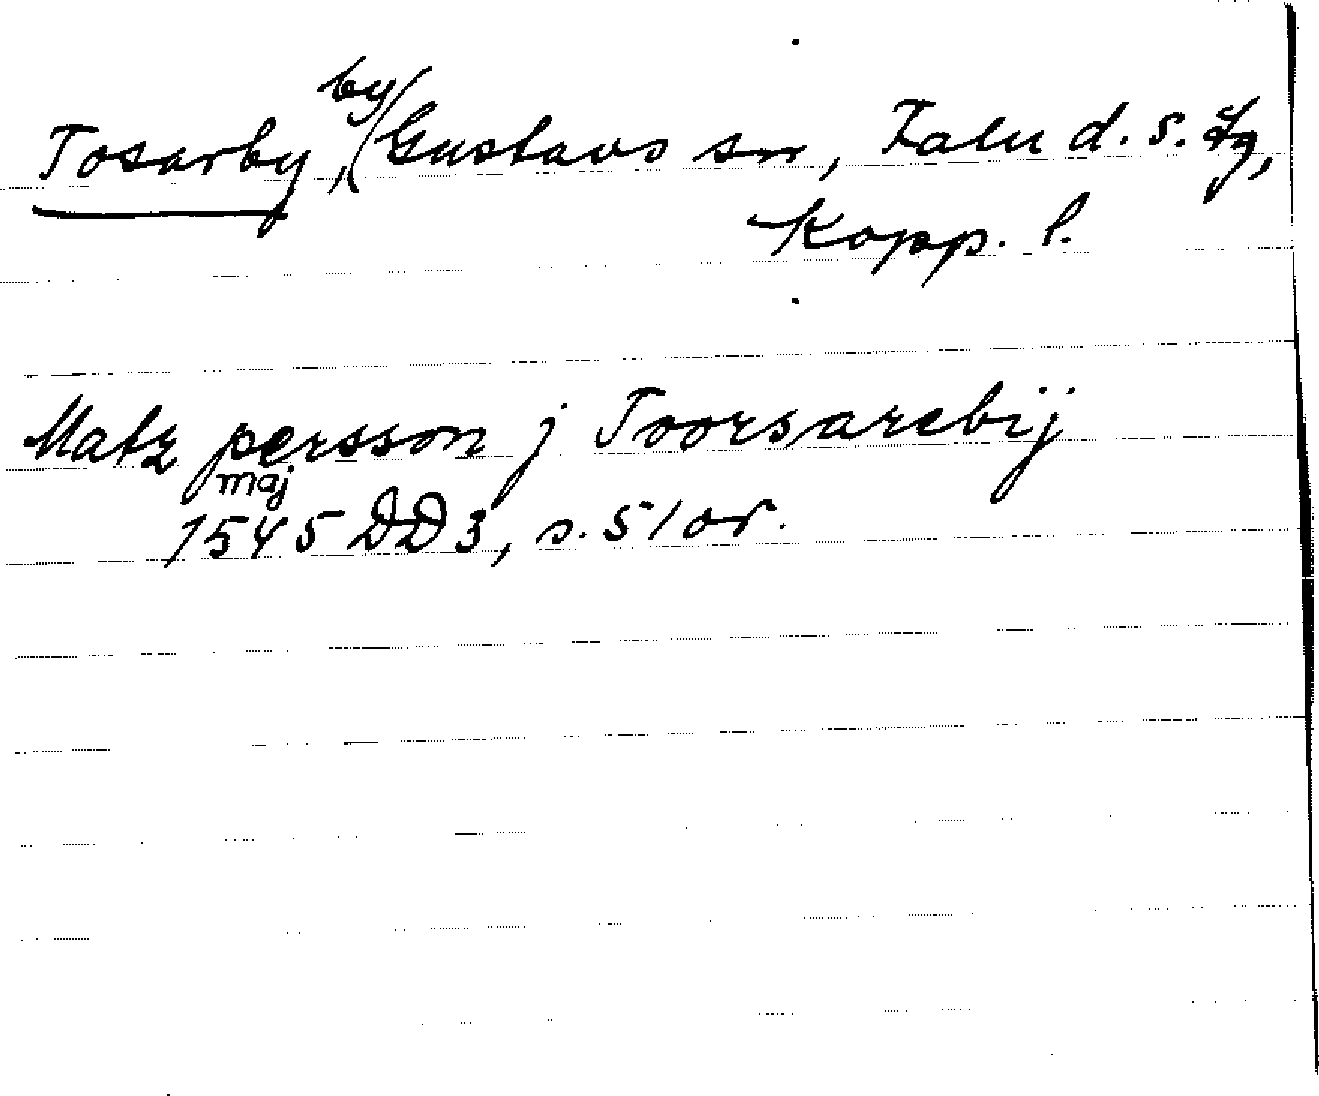 Tosarby, by Gustavs sn, Falu d. s. Fg,
Kopp. l.
Matz persson j Toorsarebij
maj
1545 DD3, s. 51 or.